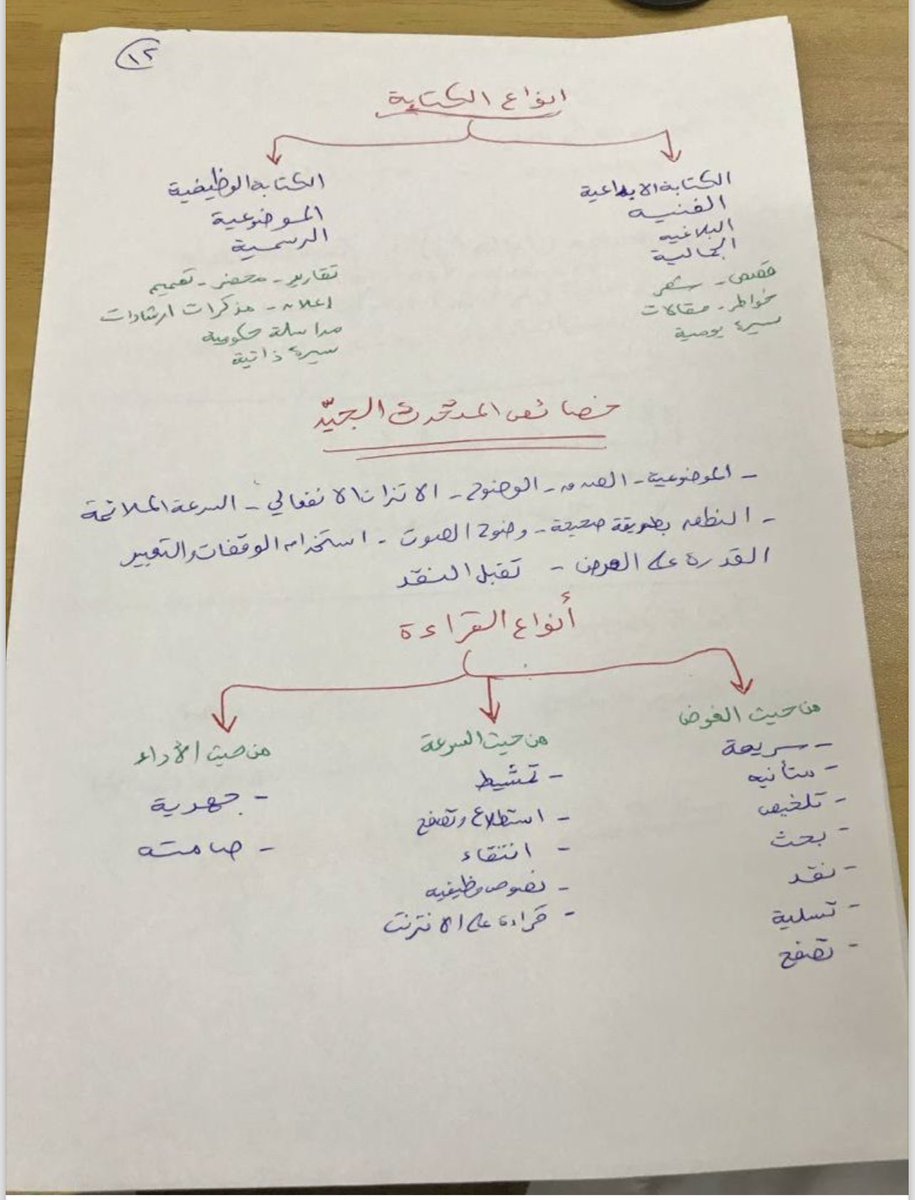 ١٢
انواع الكتابة
الكتابة الابداعية
الفنيه
البلاغيه
الجمالية
قصص - شعر
خواطر - مقالات
سيرة يومية
الكتابة الوظيفية
الموضوعية
الرسمية
تقارير - محضر - تعميم
إعلان - مذكرات ارشادات
مراسلة حكوميه
سيرة ذاتية
خصائص المتحدث الجيّد
- الموضوعية - الصدق - الوضوح - الاتزان الانفعالي - السرعة الملائمة
- النطق بطريقة صحيحة - وضوح الصوت - استخدام الوقفات والتعبير
القدرة على العرض - تقبل النقد
أنواع القراءة
من حيث الغرض
- سريعة
- متأنيه
- تلخيص
- بحث
- نقد
- تسلية
- تصفح
من حيث السرعة
- تمشيط
- استطلاع وتصفح
- انتقاء
- نصوص وظيفيه
- قراءة على الانترنت
من حيث الأداء
- جهرية
- صامته